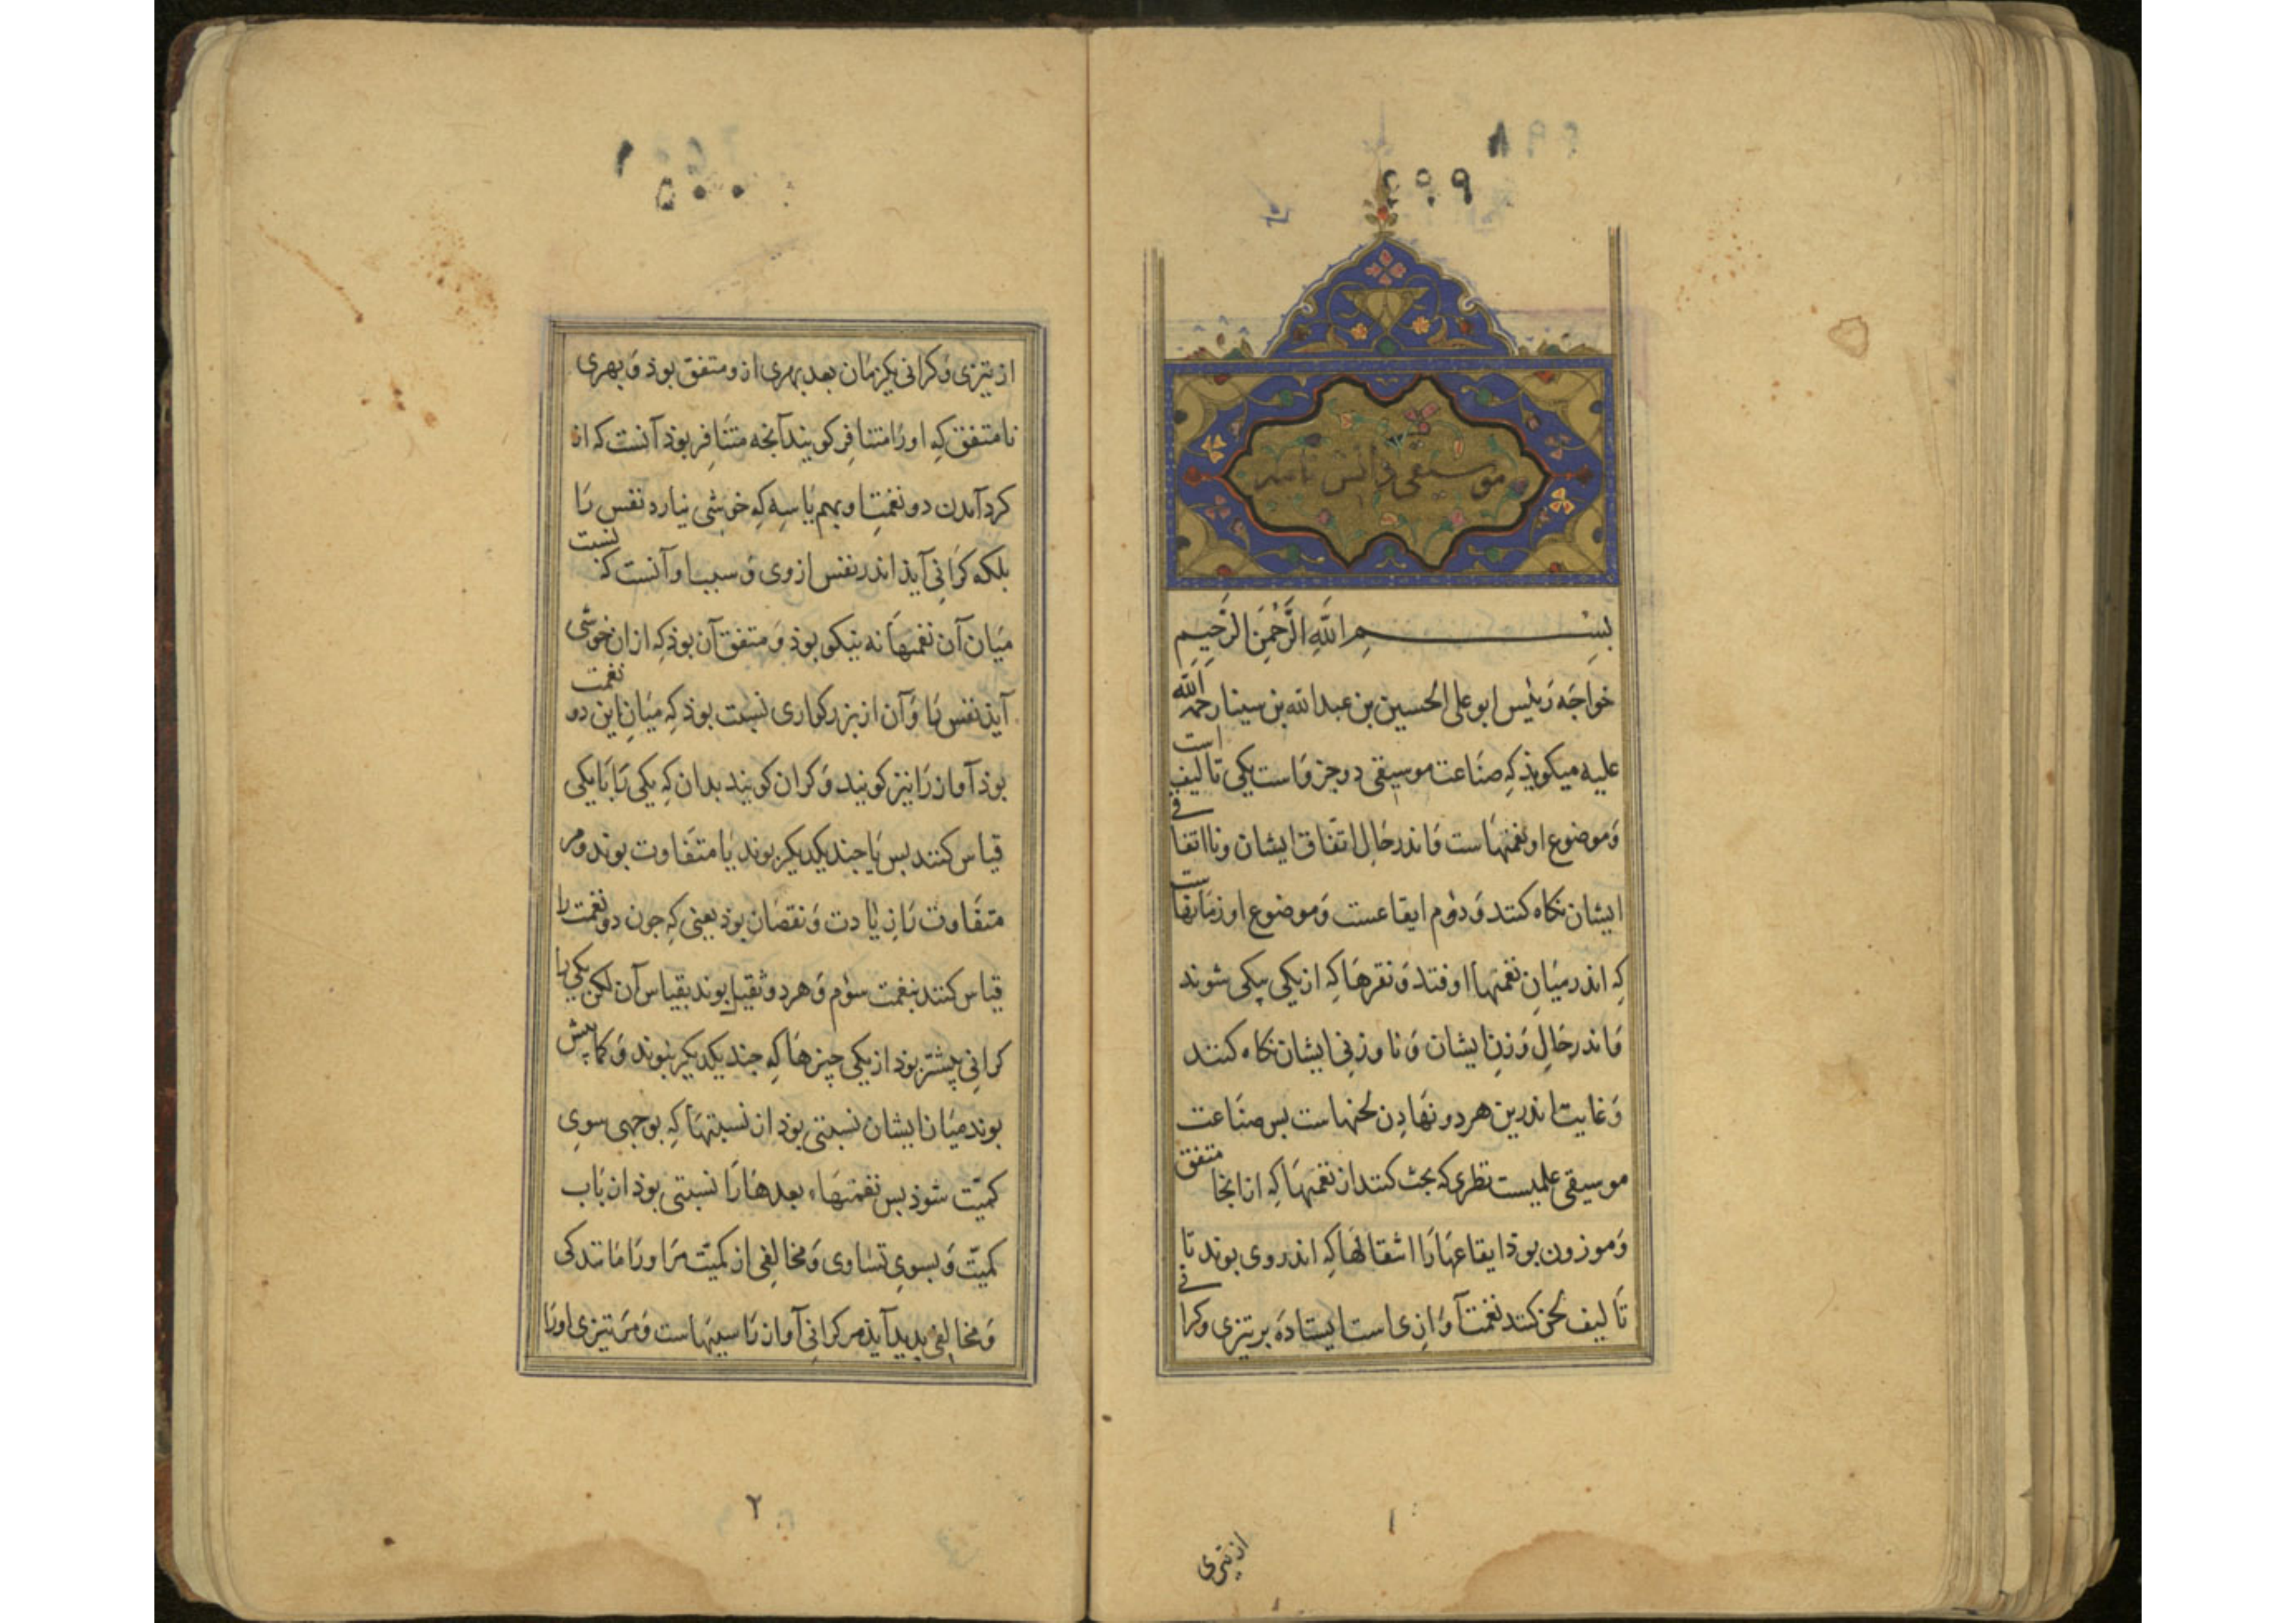 ۴۹۸
۴۹۹
موسیقی دانش نامه
بِسْمِ اللهِ الرَّحْمٰنِ الرَّحِيمِ
خواجَه رَئیس ابو علی الحسین بن عبدالله بن سینا رحمة الله
علیه میکویذ کِه صنَاعت موسیقی دو جزو است یکی تالیف است
وَموضوع او نغمتهَاست وَاندر حَالِ اتّفاق ایشان ونااتفاقی
ایشان نکاه کنند وَدوُم ایقاعست وَموضوع او زمَانهاست
کِه اندر میَانِ نغمتهَا اوفتد وَنقرهَا کِه از یکی بیکی شوند
وَاندر حَالِ وَزنِ ایشان وَناوزنی ایشان نکاه کنند
وَغایت اندرین هر دو نهَادن لحنهاست بس صنَاعت
موسیقی علمیست نظری که بحث کنند از نغمتهَا کِه از انجا متفق
وَموزون بوذ ایقاعهَا رَا انتقالها کِه اندر وی بوند تا
تَالیف لحن کنند نغمت آوَازی است ایستادَه بر تیزی وکرانی
از تیزی
۱
۵۰۰
از تیزی وَکرانی یکزمَان بعد بهری ازو متفق بوذ وَبهری
نامتفق کِه اورَا متنافر کویند آنجه متنَافِر بوذ آنست که از
کرد آمدن دو نغمتِ او بهم یَا سِه کِه خوشی نیارد نفس رَا
بلکه کَرَانی آیذ اندر نفس از وی وَسبب او آنست که نسبت
میَان آن نغمتهَا نه نیکو بوذ وَمتفق آن بوذ کِه ازان خوشی
آیذ نفس رَا وَآن از بزرکواری نسبت بوذ کِه میَانِ این دو نغمت
بوذ آواز رَا تیز کویند وَکران کویند بدان کِه یکی رَا بَا یکی
قیاس کنند بس یَا جند یکدیکر بوند یَا متفَاوت بوند ومر
متفَاوت رَا زیَادت وَنقصَان بوذ یعنی کِه جون دو نغمت را
قیاس کنند بنغمت سوُم وَهر دو ثقیل بوند بقیاس آن لکن یکی را
کرانی بیشتر بوذ از یکی جیزهَا کِه جند یکدیکر نبوند وَکمابیش
بوند میَان ایشان نسبتی بوذ از نسبتهَا کِه بوجهی سوی
کمیّت شوذ بس نغمتهَاء بعدهَا رَا نسبتی بوذ از بَاب
کمیّت وَبسویِ تسَاوی وَمخالِفی از کمیّت مَر اورَا مَانندکی
وَمخالِفی بدید آیذ مر کرانی آواز رَا سببهاست وَمَر تیزی اورَا
۲